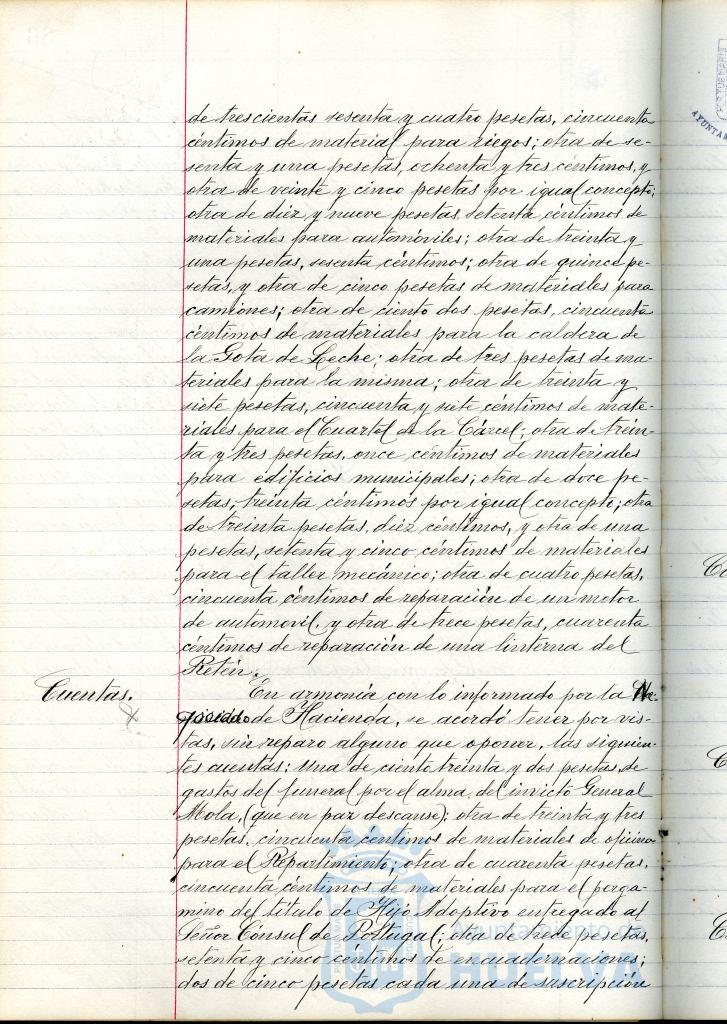 de trescientas sesenta y cuatro pesetas, cincuenta
céntimos de material para riegos; otra de se-
senta y una pesetas, ochenta y tres céntimos, y
otra de veinte y cinco pesetas por igual concepto;
otra de diez y nueve pesetas, setenta céntimos de
materiales para automóviles; otra de treinta y
una pesetas, sesenta céntimos; otra de quince pe-
setas, y otra de cinco pesetas de materiales para
camiones; otra de ciento dos pesetas, cincuenta
céntimos de materiales para la caldera de
la Gota de Leche; otra de tres pesetas de ma-
teriales para la misma; otra de treinta y
siete pesetas, cincuenta y siete céntimos de mate-
riales para el Cuartel de la Cárcel; otra de trein-
ta y tres pesetas, once céntimos de materiales
para edificios municipales; otra de doce pe-
setas, treinta céntimos por igual concepto; otra
de treinta pesetas, diez céntimos, y otra de una
pesetas, setenta y cinco céntimos de materiales
para el taller mecánico; otra de cuatro pesetas,
cincuenta céntimos de reparación de un motor
de automovil, y otra de trece pesetas, cuarenta
céntimos de reparación de una linterna del
Retén.
Cuentas. En armonía con lo informado por la Ne-
gociado de Hacienda, se acordó tener por vis-
tas, sin reparo alguno que oponer, las siguien-
tes cuentas: Una de ciento treinta y dos pesetas, de
gastos del funeral por el alma del invicto General
Mola, (que en paz descanse); otra de treinta y tres
pesetas, cincuenta céntimos de materiales de oficina
para el Repartimiento; otra de cuarenta pesetas,
cincuenta céntimos de materiales para el perga-
mino del título de Hijo Adoptivo entregado al
Señor Cónsul de Portugal; otra de trece pesetas,
setenta y cinco céntimos de encuadernaciones;
dos de cinco pesetas cada una de suscripción
Ayuntamiento de
HUELVA